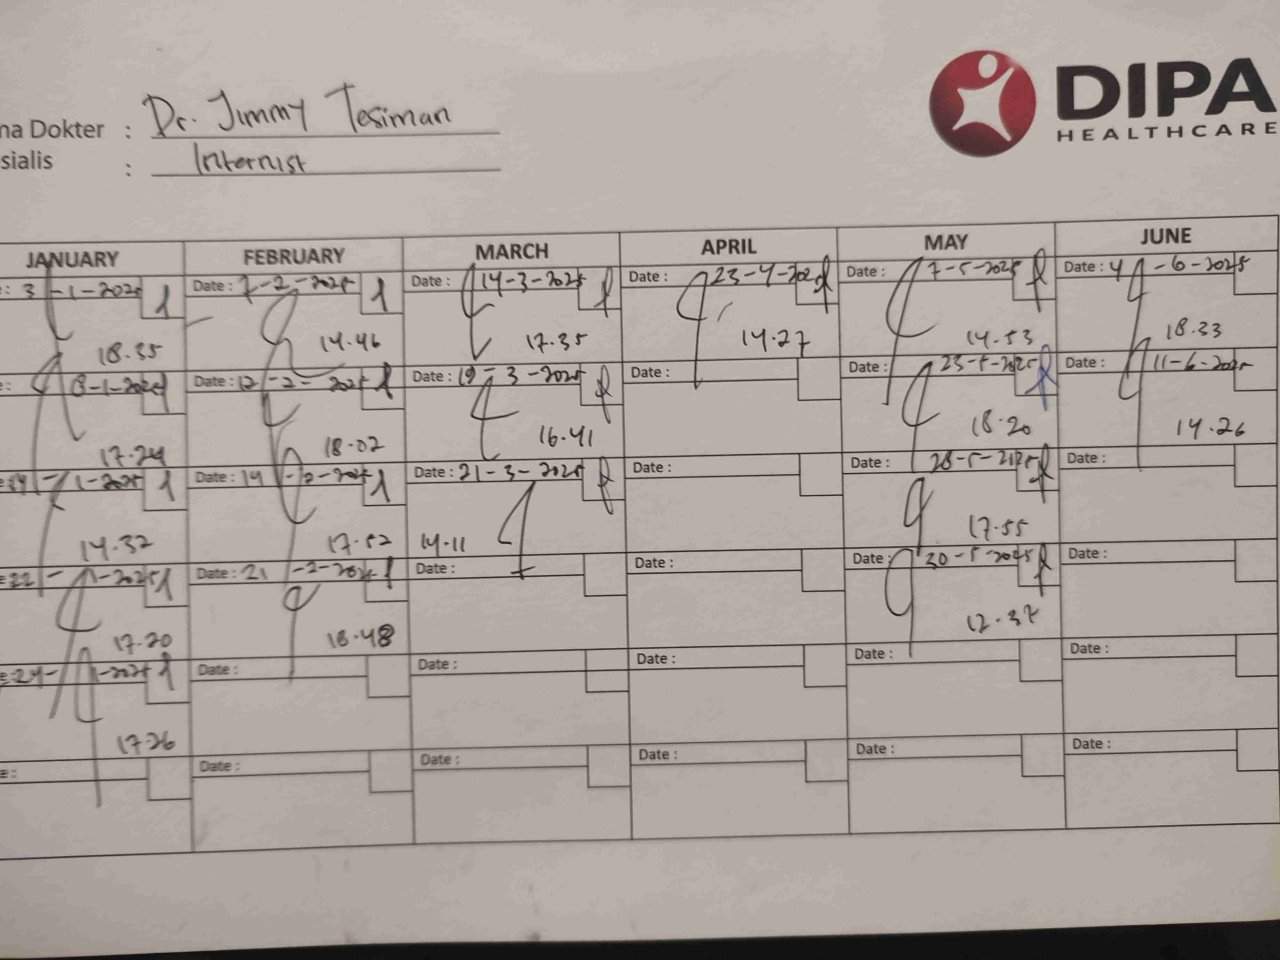 DIPA
HEALTHCARE
na Dokter : Dr. Jimmy Tesiman
sialis : Internist
JANUARY FEBRUARY MARCH APRIL MAY JUNE
: 3-1-2025 Date : 7-2-2025 Date : 14-3-2025 Date : 23-4-202 Date : 7-5-2025 Date : 4-6-2025
18.35 14.46 17.35 14.27 14.53 18.33
: 8-1-2025 Date : 12-2-2025 Date : 19-3-2025 Date : Date : 23-5-2025 Date : 11-6-2025
17.24 18.02 16.41 18.20 14.26
-1-2025 Date : 14-2-2025 Date : 21-3-2025 Date : Date : 28-5-2025 Date :
14.32 17.52 14.11 17.55
22-1-2025 Date : 21-2-202 Date : Date : Date : 30-5-2025 Date :
17.20 18.48 12.37
24-1-2025 Date : Date : Date : Date : Date :
17.26
e : Date : Date : Date : Date : Date :